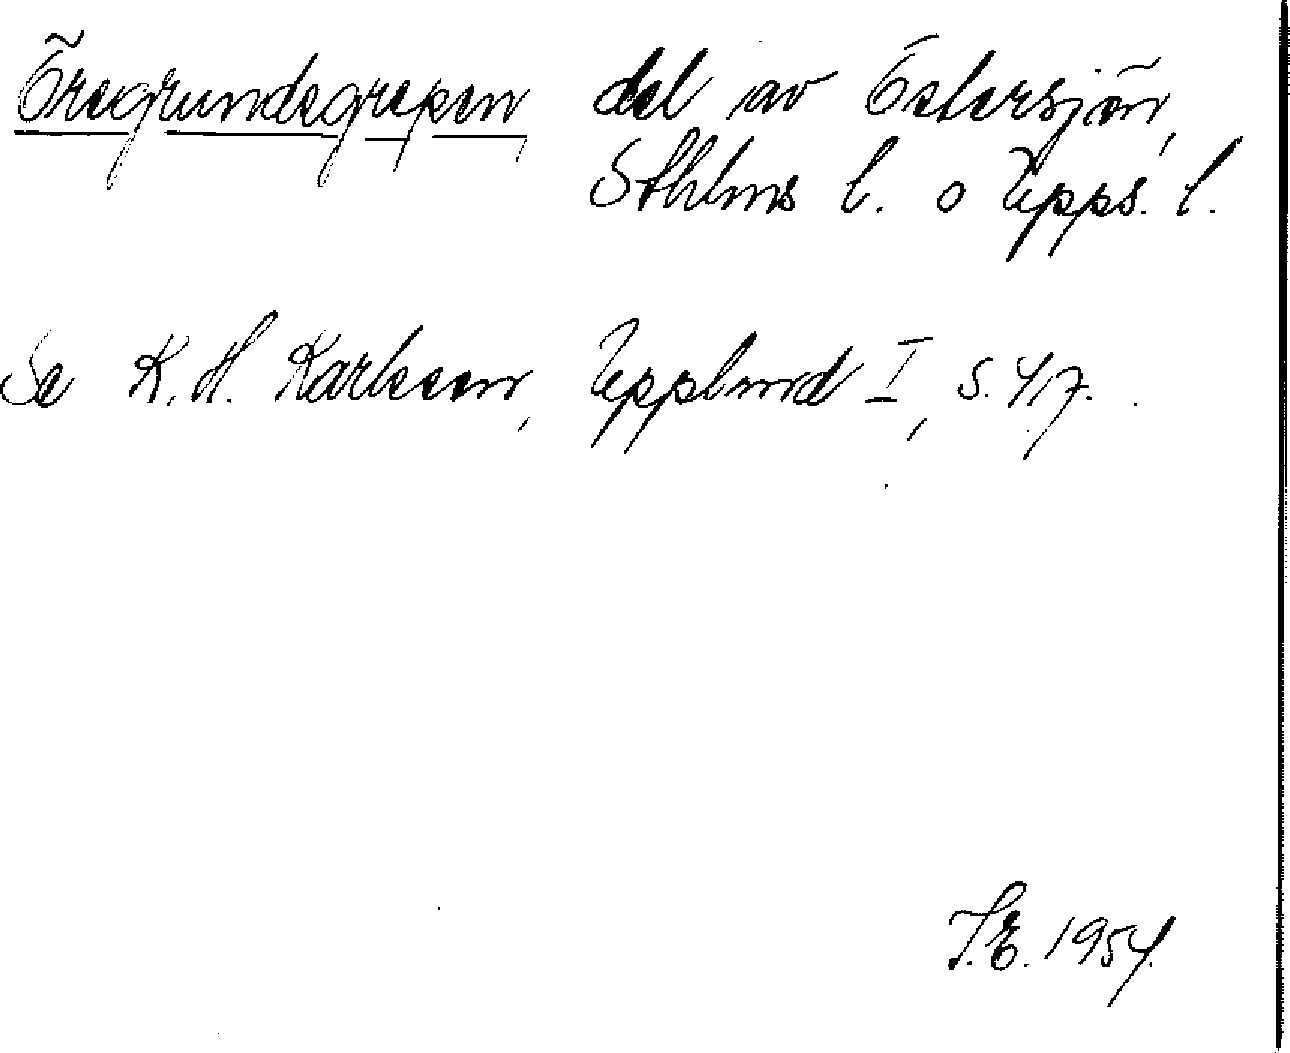 Öregrundsgrepen, del av Östersjön,
Sthlms l. o Upps. l.
Se K. H. Karlsson, Uppland I, s. 47.
J.E. 1954.